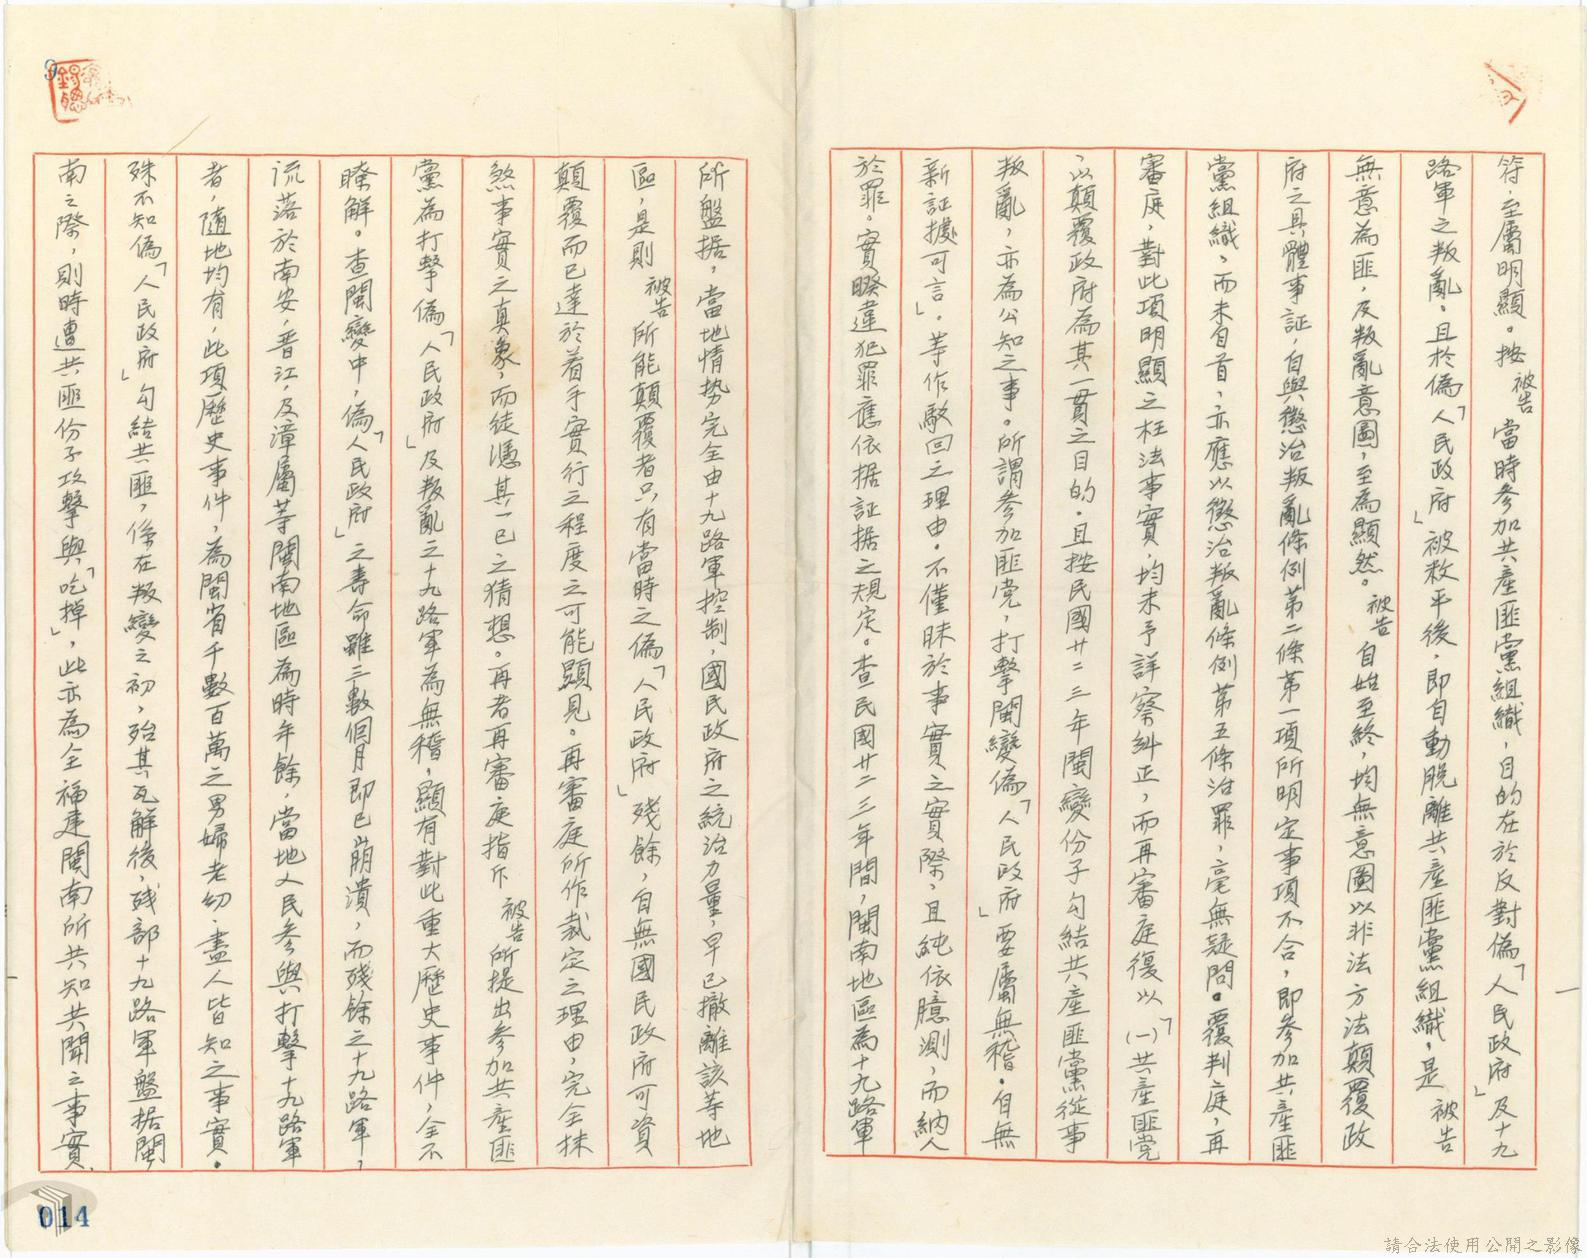 符，至屬明顯。按被告當時參加共產匪黨組織，目的在於反對偽「人民政府」及十九
路軍之叛亂。且於偽「人民政府」被救平後，即自動脫離共產匪黨組織，是被告
無意為匪，及叛亂意圖，至為顯然。被告自始至終，均無意圖以非法方法顛覆政
府之具體事証，自與懲治叛亂條例第二條第一項所明定事項不合，即參加共產匪
黨組織，而未自首，亦應以懲治叛亂條例第五條治罪，毫無疑問。覆判庭，再
審庭，對此項明顯之枉法事實，均未予詳察糾正，而再審庭復以「(一)共產匪党
，以顛覆政府為其一貫之目的。且按民國廿二三年閩變份子勾結共產匪黨從事
叛亂，亦為公知之事。所謂參加匪党，打擊閩變偽「人民政府」要屬無稽。自無
新証據可言」。等作駁回之理由。不僅昧於事實之實際，且純依臆測，而納人
於罪。實暌違犯罪應依据証据之規定。查民國廿二三年間，閩南地區為十九路軍
所盤据，當地情勢完全由十九路軍控制，國民政府之統治力量，早已撤離該等地
區，是則被告所能顛覆者只有當時之偽「人民政府」殘餘，自無國民政府可資
顛覆而已達於着手實行之程度之可能顯見。再審庭所作裁定之理由，完全抹
煞事實之真象，而徒憑其一己之猜想。再者再審庭指斥被告所提出參加共產匪
黨為打擊偽「人民政府」及叛亂之十九路軍為無稽，顯有對此重大歷史事件，全不
瞭解。查閩變中，偽「人民政府」之壽命雖三數個月即已崩潰，而殘餘之十九路軍，
流落於南安，晋江，及漳屬等閩南地區為時年餘，當地人民參與打擊十九路軍
者，隨地均有，此項歷史事件，為閩省千數百萬之男婦老幼，盡人皆知之事實。
殊不知偽「人民政府」勾結共匪，係在叛變之初，殆其瓦解後，殘部十九路軍盤据閩
南之際，則時遭共匪份子攻擊與「吃掉」，此亦為全福建閩南所共知共聞之事實，
014
請合法使用公開之影像